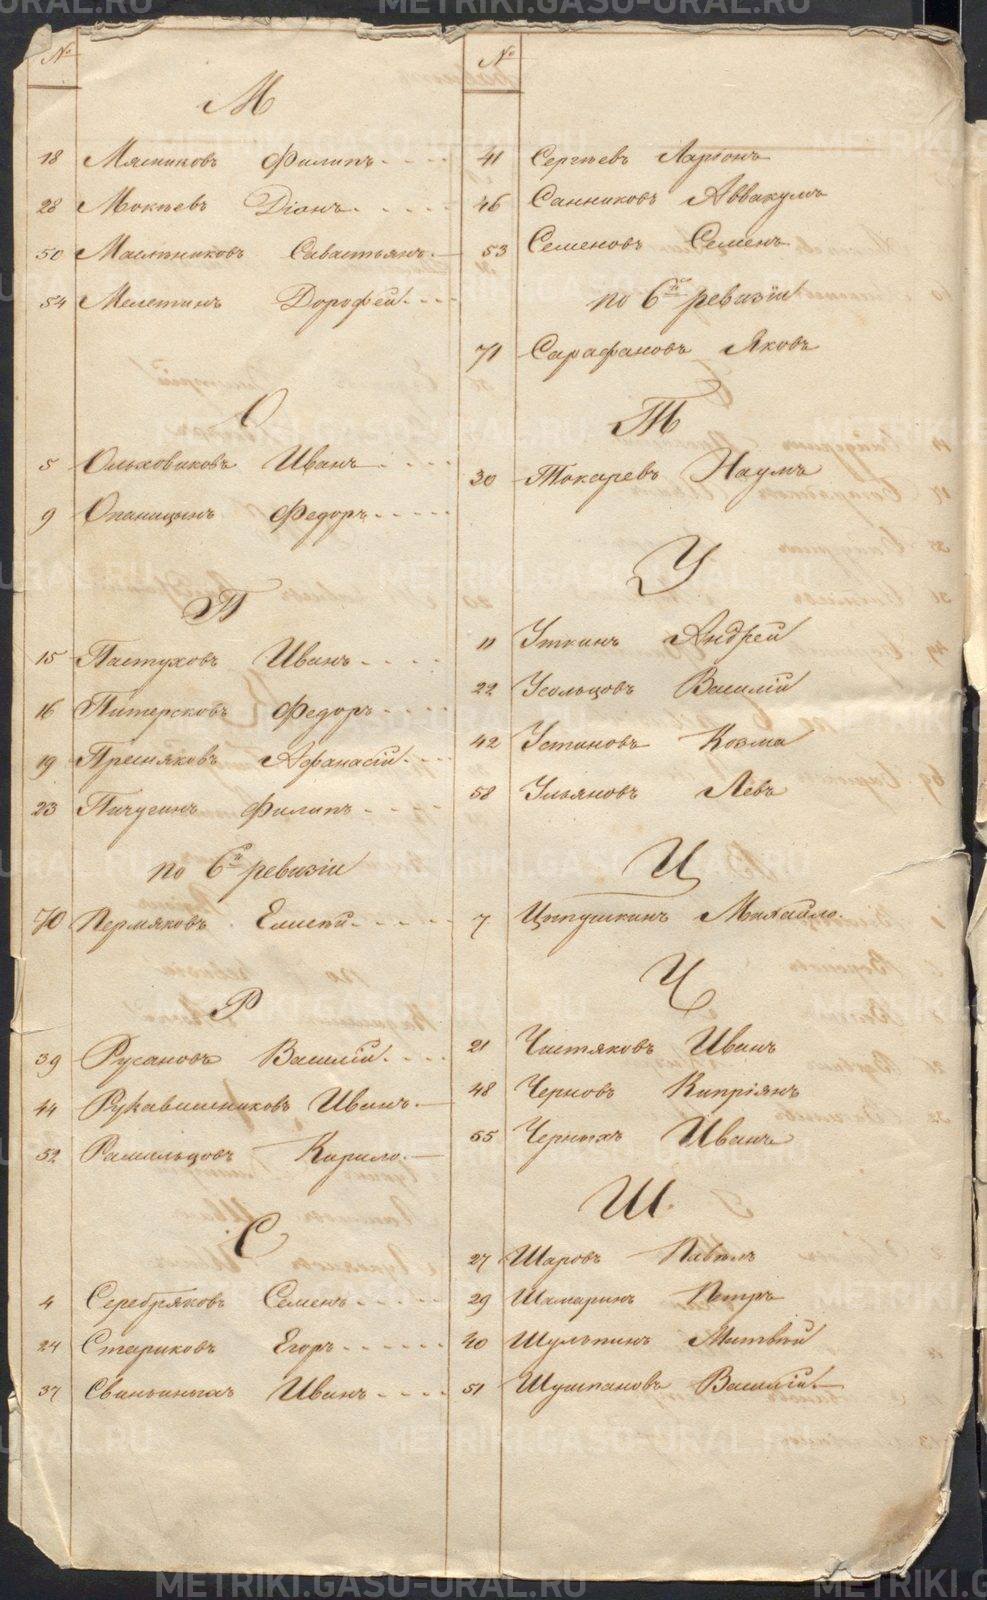 №
М
18 Мясниковъ Филипъ
28 Мокѣевъ Діанъ
50 Масляниковъ Савастьянъ
54 Мелетинъ Дорофей
О
5 Ольховиковъ Иванъ
9 Опаницынъ Федоръ
П
15 Пастуховъ Иванъ
16 Питерсковъ Федоръ
19 Пресняковъ Афанасій
23 Пичугинъ Филипъ
по 6й ревизіи
70 Пермяковъ Елисѣй
Р
39 Русановъ Василій
44 Рукавишниковъ Иванъ
52 Рамильцовъ Кирило
С
4 Серебряковъ Семенъ
24 Стариковъ Егоръ
37 Свиньиныхъ Иванъ
№
41 Сергѣевъ Ларіонъ
46 Санниковъ Аввакумъ
53 Семеновъ Семенъ
по 6й ревизіи
71 Сарафановъ Яковъ
Т
30 Токаревъ Наумъ
У
11 Уткинъ Андрей
22 Усольцовъ Василій
42 Устиновъ Козма
58 Ульяновъ Левъ
Ц
7 Цѣпушкинъ Михайло
Ч
21 Чистяковъ Иванъ
48 Черновъ Кипріянъ
55 Черныхъ Иванъ
Ш
27 Шаровъ Павелъ
29 Шамаринъ Петръ
40 Шульпинъ Матвѣй
51 Шушпановъ Василій
METRIKI.GASU-URAL.RU